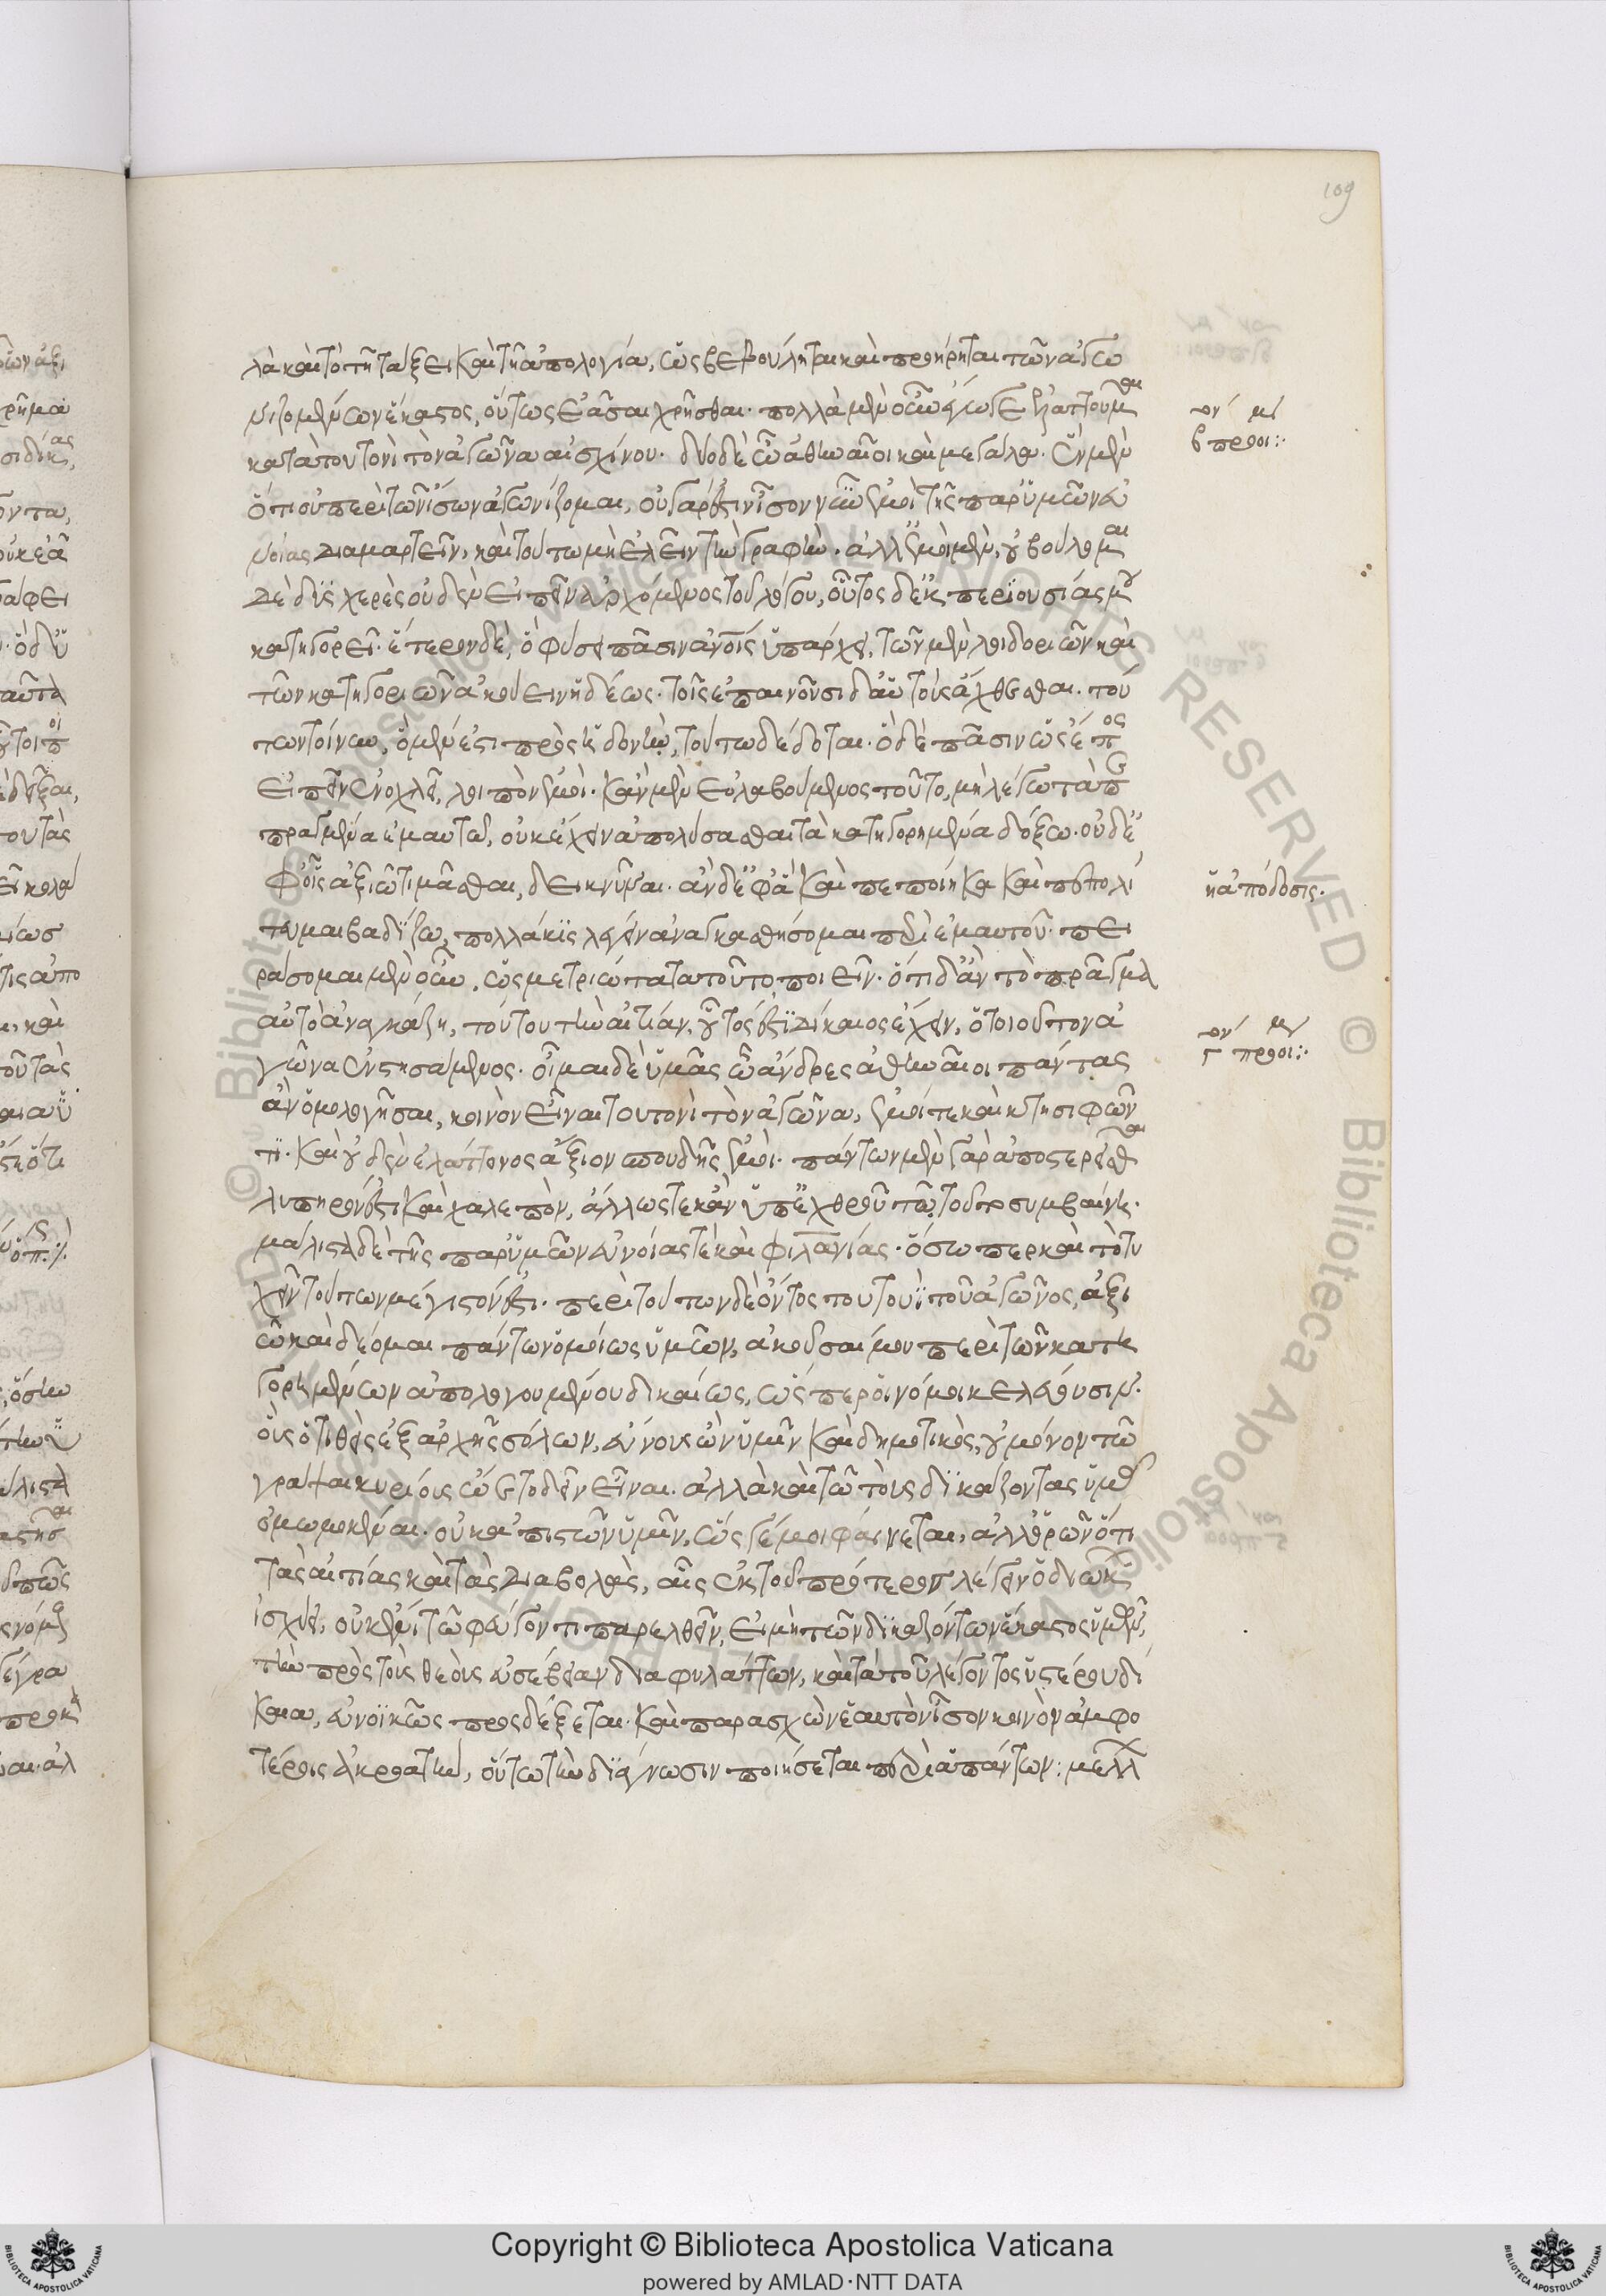 109
λὰ καὶ τὸ τῆ τάξει καὶ τῆ ἀπολογία, ὡς βεβούληται καὶ προήρηται τῶν ἀγω
νιζομένων ἕκαστος, οὕτως ἐᾶσαι χρῆσθαι. πολλὰ μὲν οὖν ἔγωγε ἐλαττοῦμαι
κατὰ τουτονὶ τὸν ἀγῶνα αἰσχίνου. δύο δὲ ὦ ἀθηναῖοι καὶ μεγάλα. ἓν μὲν
ὅτι οὐ περὶ τῶν ἴσων ἀγωνίζομαι, οὐ γάρ ἐστιν ἴσον νῦν ἐμοὶ τῆς παρ' ὑμῶν εὐ
νοίας διαμαρτεῖν, καὶ τούτω μὴ ἑλεῖν τὴν γραφήν. ἀλλ' ἐμοὶ μὲν, οὐ βούλομαι
δὲ δυσχερὲς οὐδὲν εἰπεῖν ἀρχόμενος τοῦ λόγου, οὗτος δ' ἐκ περιουσίας μου
κατηγορεῖ. ἕτερον δὲ, ὃ φύσει πᾶσιν ἀνοις ὑπάρχει, τῶν μὲν λοιδοριῶν καὶ
τῶν κατηγοριῶν ἀκούειν ἡδέως. τοῖς ἐπαινοῦσι δ' αὑτοὺς ἄχθεσθαι. τού
των τοίνυν, ὃ μέν ἐστι πρὸς ἡδονὴν, τούτω δέδοται. ὃ δὲ πᾶσιν ὡς ἔπος
εἰπεῖν ἐνοχλεῖ, λοιπὸν ἐμοί. κἂν μὲν εὐλαβούμενος τοῦτο, μὴ λέγω τὰ πε
πραγμένα ἐμαυτῶ, οὐκ ἔχειν ἀπολύσασθαι τὰ κατηγορημένα δόξω. οὐδ' ἐ
φ' οἷς ἀξιῶ τιμᾶσθαι, δεικνύναι. ἂν δ' ἐφ' ἃ καὶ πεποίηκα καὶ πεπολί
τευμαι βαδίζω, πολλάκις λέγειν ἀναγκασθήσομαι περὶ ἐμαυτοῦ. πει
ράσομαι μὲν οὖν, ὡς μετριώτατα τοῦτο ποιεῖν. ὅτι δ' ἂν τὸ πρᾶγμα
αὐτὸ ἀναγκάζη, τούτου τὴν αἰτίαν, οὗτός ἐστι δίκαιος ἔχειν, ὁ τοιοῦτον ἀ
γῶνα ἐνστησάμενος. οἶμαι δὲ ὑμᾶς ὦ ἄνδρες ἀθηναῖοι πάντας
ἂν ὁμολογῆσαι, κοινὸν εἶναι τουτονὶ τὸν ἀγῶνα, ἐμοί τε καὶ κτησιφῶν
τι. καὶ οὐδὲν ἐλάττονος ἄξιον σπουδῆς ἐμοί. πάντων μὲν γὰρ ἀποστερεῖσθαι
λυπηρόν ἐστι καὶ χαλεπὸν, ἄλλως τε κἂν ὑπ' ἐχθροῦ τω τοῦτο συμβαίνη.
μάλιστα δὲ τῆς παρ' ὑμῶν εὐνοίας τὲ καὶ φιλανίας. ὅσω περ καὶ τὸ τυ
χεῖν τούτων μέγιστόν ἐστι. περὶ τούτων δὲ ὄντος τουτουῒ τοῦ ἀγῶνος, ἀξι
ῶ καὶ δέομαι πάντων ὁμοίως ὑμῶν, ἀκοῦσαί μου περὶ τῶν κατη
γορημένων ἀπολογουμένου δικαίως, ὥσπερ οἱ νόμοι κελεύουσιν.
οὓς ὁ τιθεὶς ἐξ ἀρχῆς σόλων, εὔνους ὢν ὑμῖν καὶ δημοτικὸς, οὐ μόνον τῶ
γράψαι κυρίους ὤετο δεῖν εἶναι. ἀλλὰ καὶ τῶ τοὺς δικάζοντας ὑμᾶς
ὀμωμοκέναι. οὐκ ἀπιστῶν ὑμῖν, ὥς γέ μοι φαίνεται, ἀλλ' ὁρῶν ὅτι
τὰς αἰτίας καὶ τὰς διαβολὰς, αἷς ἐκ τοῦ πρότερος λέγειν ὁ διώκων
ἰσχύει, οὐκ ἔνι τῶ φεύγοντι παρελθεῖν, εἰ μὴ τῶν δικαζόντων ἕκαστος ὑμῶν,
τὴν πρὸς τοὺς θεοὺς εὐσέβειαν διαφυλάττων, καὶ τὰ τοῦ λέγοντος ὑστέρου δί
καια, εὐνοϊκῶς προσδέξεται. καὶ παρασχὼν ἑαυτὸν ἴσον κοινὸν ἀμφο
τέροις ἀκροατὴν, οὕτω τὴν διάγνωσιν ποιήσεται περὶ ἁπάντων: μέλλων
β προοι:.
ἡ ἀπόδοσις.
γ προοι:.
Copyright © Biblioteca Apostolica Vaticana
powered by AMLAD·NTT DATA